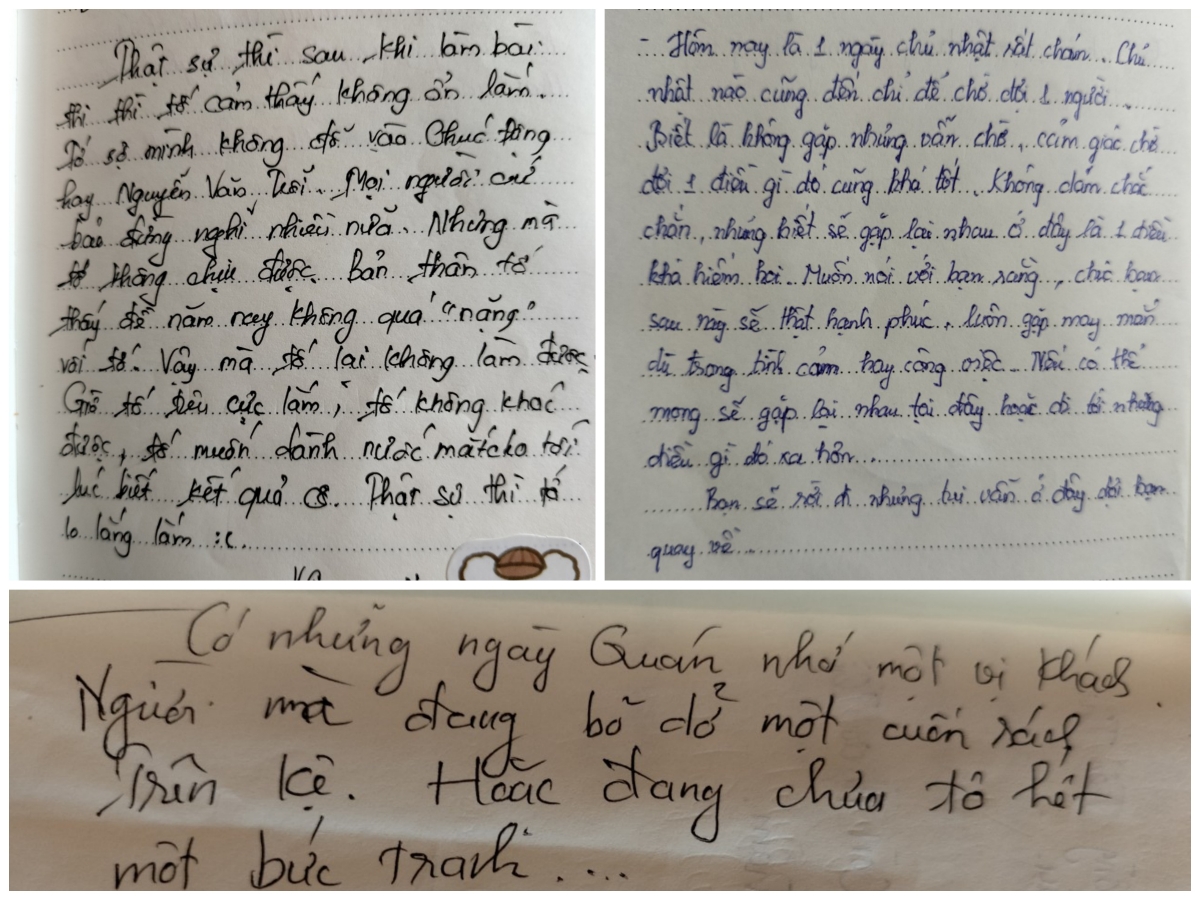 Thật sự thì sau khi làm bài
thi thì tớ cảm thấy không ổn lắm.
Tớ sợ mình không đỗ vào Chuế Đông
hay Nguyễn Văn Trỗi. Mọi người cứ
bảo đừng nghĩ nhiều nữa. Nhưng mà
tớ không chịu được. Bản thân tớ
thấy đề năm nay không quá "nặng"
với tớ. Vậy mà tớ lại không làm được
Giờ tớ tiêu cực lắm, tớ không khóc
được, tớ muốn dành nước mắt cho tới
lúc biết kết quả cơ. Thật sự thì tớ
lo lắng lắm :c.
- Hôm nay là 1 ngày chủ nhật rất chán. Chủ
nhật nào cũng đến chỉ để chờ đợi 1 người.
Biết là không gặp nhưng vẫn chờ, cảm giác chờ
đợi 1 điều gì đó cũng khá tốt. Không dám chắc
chắn, nhưng biết sẽ gặp lại nhau ở đây là 1 điều
khá hiếm hoi. Muốn nói với bạn rằng, chúc bạn
sau này sẽ thật hạnh phúc, luôn gặp may mắn
dù trong tình cảm hay công việc. Nếu có thể
mong sẽ gặp lại nhau tại đây hoặc ở tới những
điều gì đó xa hơn...
Bạn sẽ rời đi nhưng tui vẫn ở đây đợi bạn
quay về...
Có những ngày Quán nhớ một vị khách.
Người mà đang bỏ dở một cuốn sách
trên kệ. Hoặc đang chưa tô hết
một bức tranh....